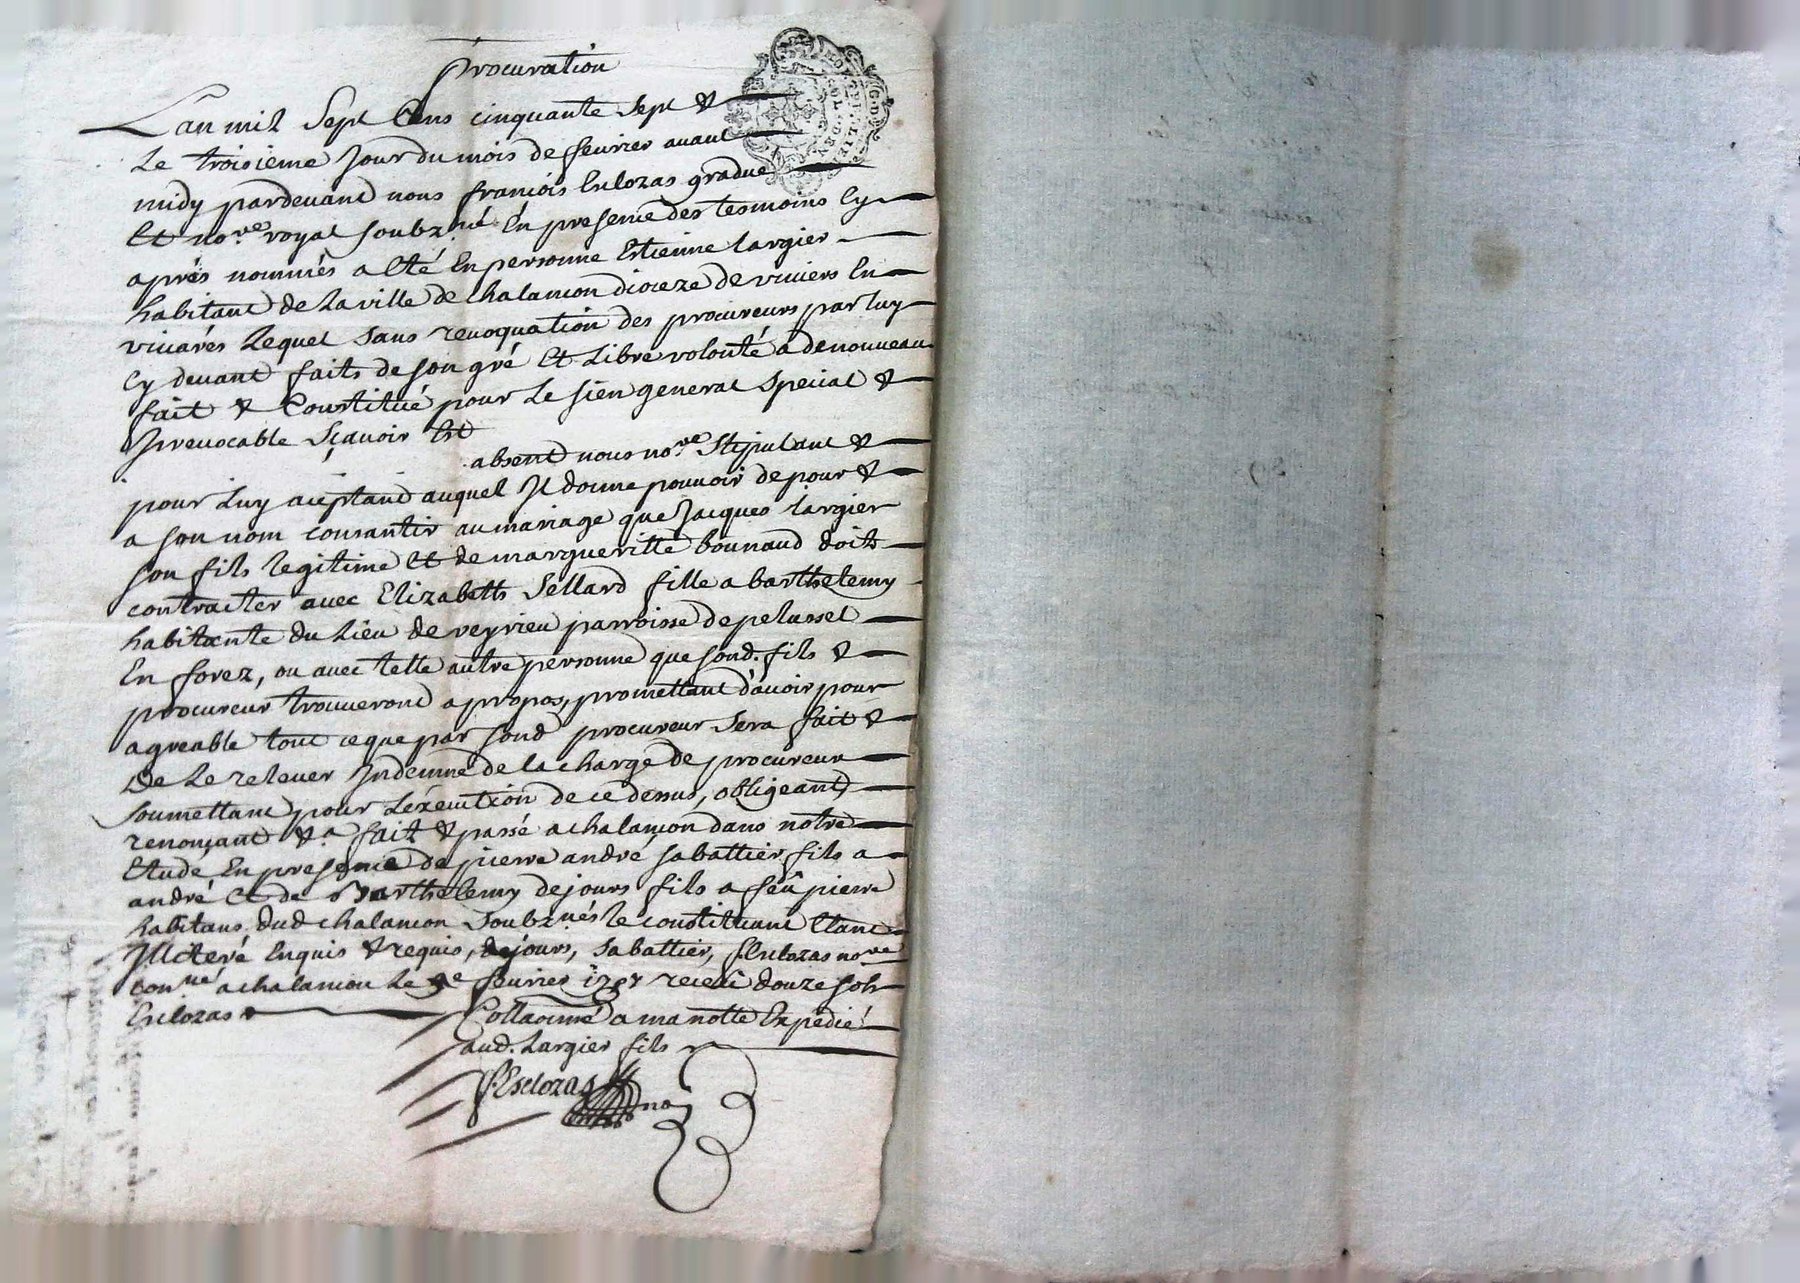 procuration
L'an mil Sept Cens cinquante Sept &
Le troisieme Jour du mois de feuvrier avant
midy pardevant nous françois Esclozas gradué
Et no.re royal soubz.né En presence des tesmoins Cy
aprés nommés a Eté En personne Estienne Largier
habitant de La ville de Chalancon dioceze de viviers En
vivarés Lequel Sans revoquation des procureurs par luy
Cy devant faits de son gré Et Libre volonté a de nouveau
fait & Constitué pour Le sien general Special &
Jrrevocable Sçavoir Est
absent nous no.re Stipulant &
pour Luy aceptand auquel Jl donne pouvoir de pour &
a son nom consantir au mariage que Jacques Largier
son fils legitime Et de margueritte bounaud doit
contracter avec Elizabeth Sellard fille a barthelemy
habitante du Lieu de veyrieu parroisse de pelussel
En forez, ou avec telle autre personne que sond. fils &
procureur trouveront a propos, promettant d'avoir pour
agreable tout ce que par sond procureur Sera fait &
De Le relever Jndemne de la charge de procureur
soumettant pour L'éxecution de ce dessus, obligeant
renonçant &.a fait & passé a chalançon dans notre
Etude En presence de pierre andré sabattier fils a
andré Et de Barthelemy dejours fils a feû pierre
habitans dud chalancon Soubz.nés le constituant Etant
Jlliteré Enquis & requis, dejours, Sabattier, f. Esclozas no.re
con.llé a chalancon Le 9e feuvrier 1757 receu douze sols
Esclozas
Collationné a ma notte Expedié
aud. Largier fils
f. Esclozas no.